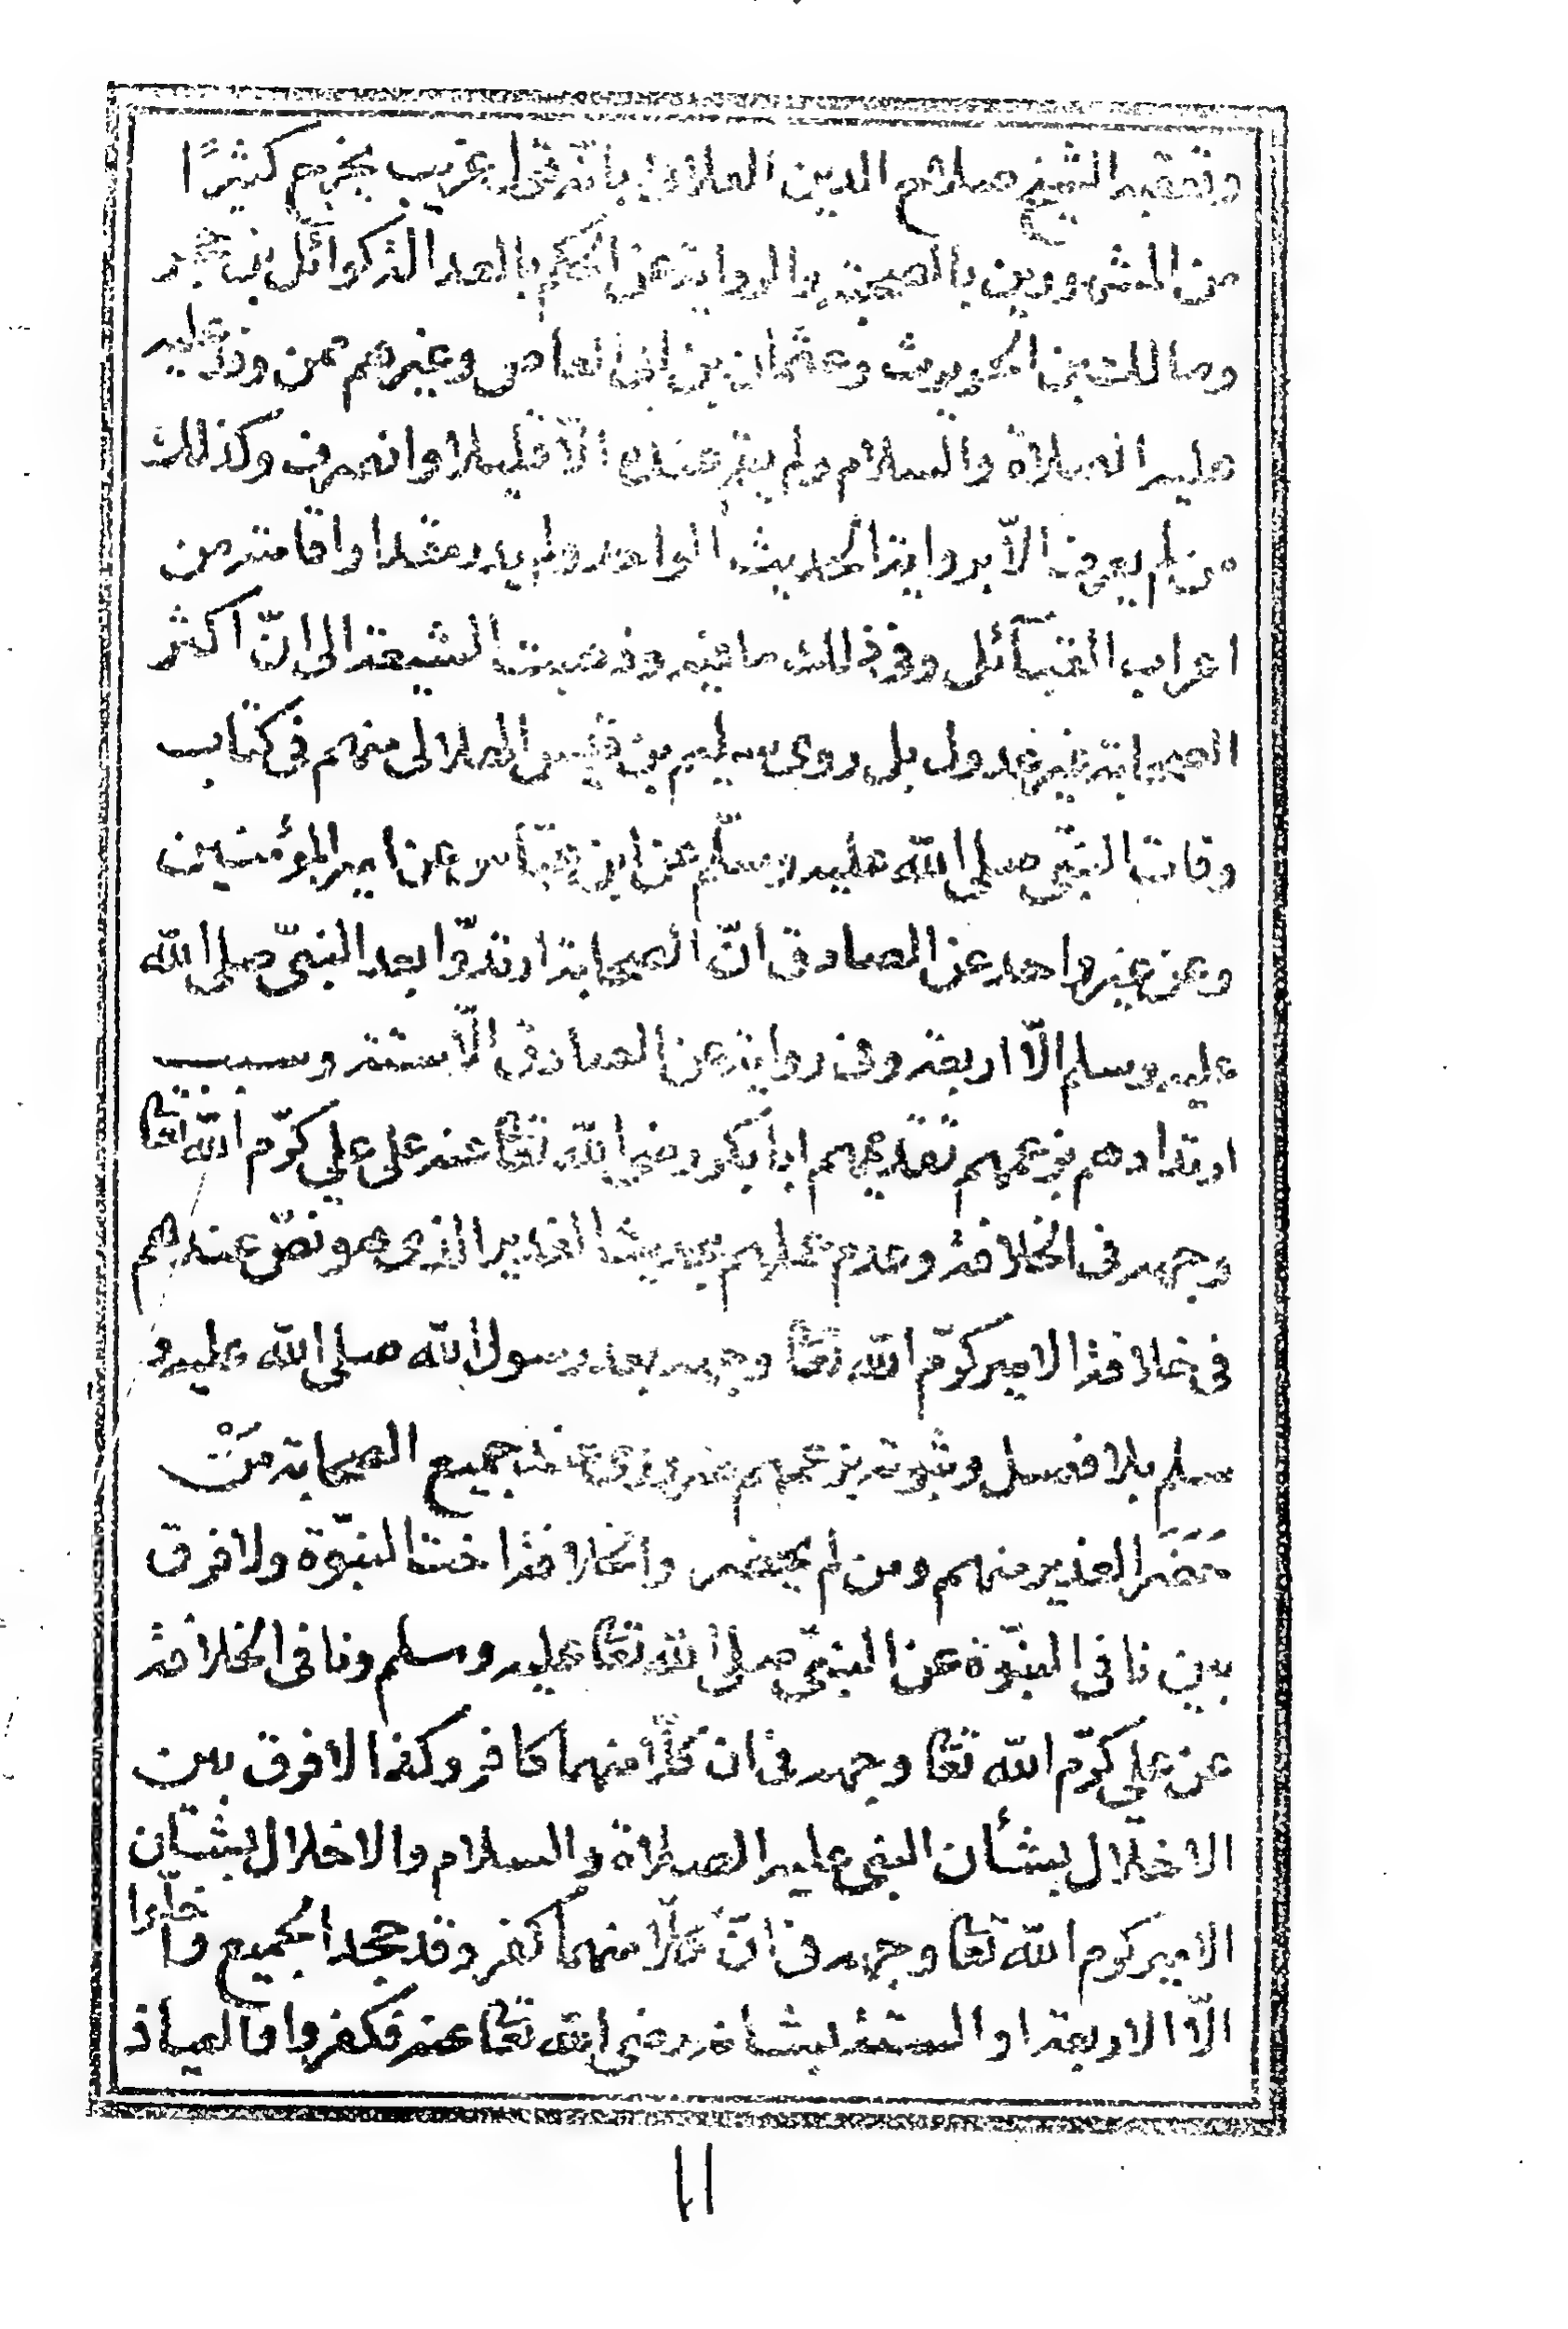 وتعقبه الشيخ صلاح الدين العلائى بانه قول غريب يخرج كثيرًا
من المشهورين بالصحبة والرواية عن الحكم بالعدالة كوائل بن حجر
ومالك بن الحويرث وعثمان بن ابى العاص وغيرهم ممن وفد عليه
عليه الصلاة والسلام ولم يقم عنده الّا قليلا وانصرف وكذلك
من لم يعرف الّا برواية الحديث الواحد ولم يدر مقدار اقامته من
اعراب القبآئل وفى ذلك ما فيه وذهبت الشيعة الى انّ اكثر
الصحابة غير عدول بل روى سليم بن قيس الهلالى منهم فى كتاب
وفات النبىّ صلى الله عليه وسلّم عن ابن عبّاس عن امير المؤمنين
وعن غير واحد عن الصادق انّ الصحابة ارتدّوا بعد النبىّ صلى الله
عليه وسلم الّا اربعة وفى رواية عن الصادق الّا ستة وسبب
ارتدادهم بزعمهم تقديمهم ابا بكر رضى الله تعالى عنه على على كرّم الله تعالى
وجهه فى الخلافة وعدم عملهم بحديث الغدير الذى هو نصّ عندهم
فى خلافة الامير كرّم الله تعالى وجهه بعد رسول الله صلى الله عليه و
سلم بلا فصل وثبوته بزعمهم ضرورى عند جميع الصحابة مَنْ
حَضَرَ الغدير منهم ومن لم يحضر والخلافة اخت النبّوة ولا فرق
بين نافى النبّوة عن النبىّ صلى الله تعالى عليه وسلم ونافى الخلافة
عن على كرّم الله تعالى وجهه فى ان كلّا منهما كافر وكذا لا فرق بين
الاخلال بشأن النبى عليه الصلاة والسلام والاخلال بشان
الامير كرم الله تعالى وجهه فى انّ كلّا منهما كفر وقد جحد الجميع واخلّوا
الّا الاربعة او الستة بشانه رضى الله تعالى عنه فكفروا والعياذ
١١